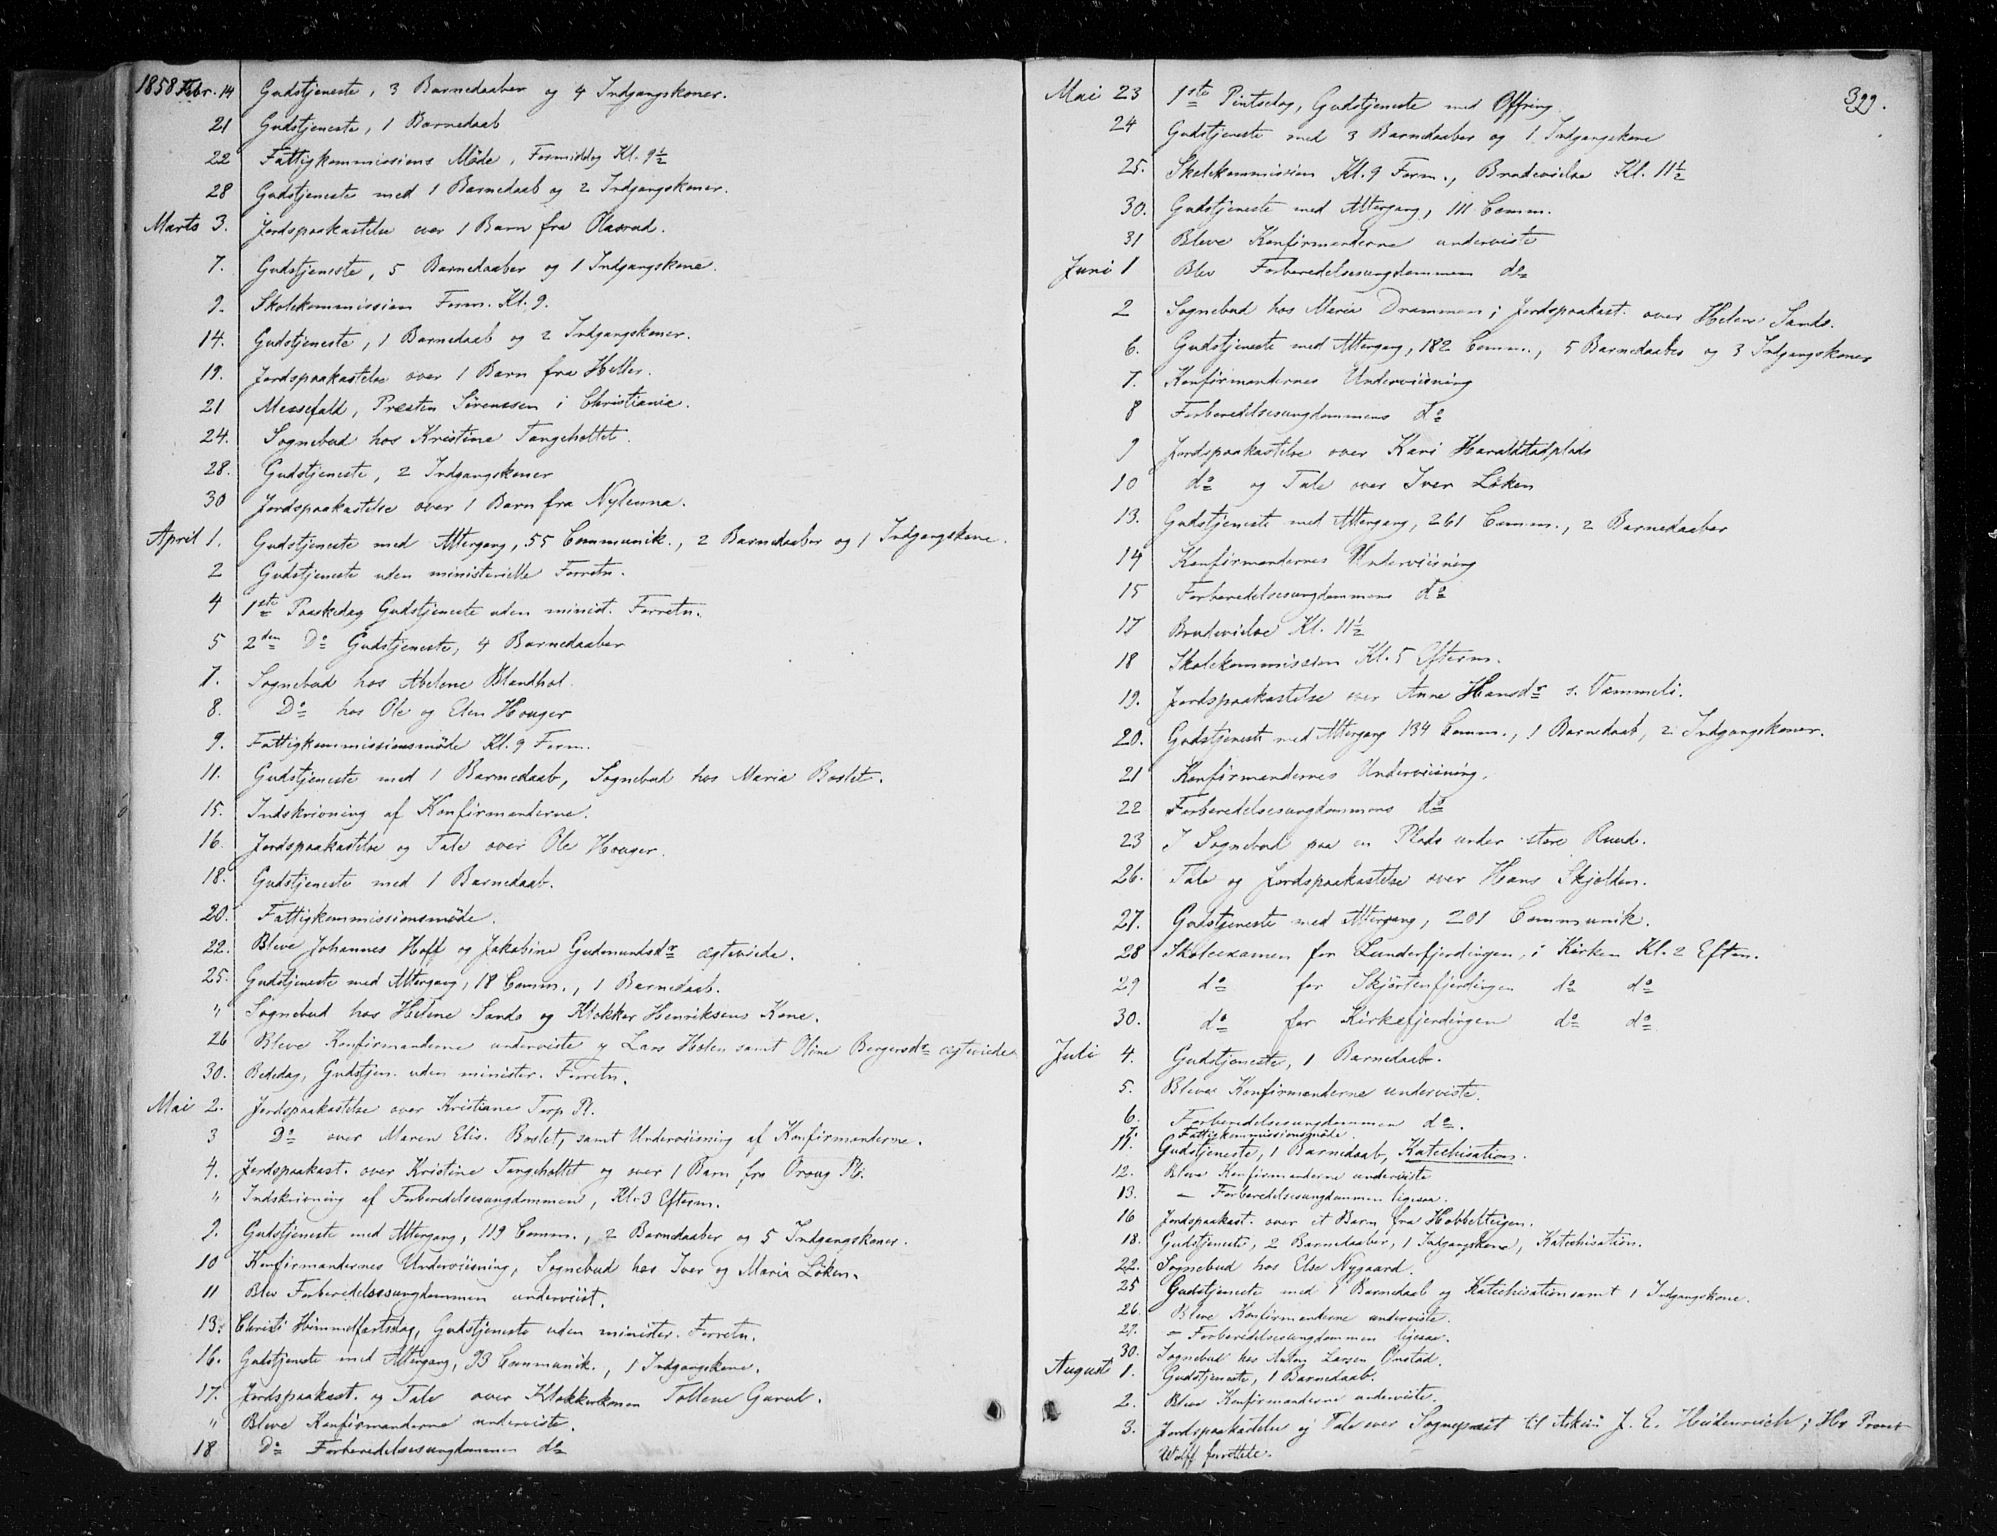 1858 Febr. 14 Gudstjeneste, 3 Barnedaaber og 4 Indgangskoner.
21 Gudstjeneste, 1 Barnedaab
22 Fattigkommissions Möde, Formiddag Kl. 9½
28 Gudstjeneste med 1 Barnedaab og 2 Indgangskoner.
Marts 3. Jordspaakastelse over 1 Barn fra Olasrud.
7. Gudstjeneste, 5 Barnedaaber og 1 Indgangskone.
9. Skolekommission Form. Kl. 9.
14. Gudstjeneste, 1 Barnedaab og 2 Indgangskoner.
19. Jordspaakastelse over 1 Barn fra Heller.
21 Messefald, Præsten Sörenssen i Christiania.
24. Sognebud hos Kristine Tangeholtet.
28. Gudstjeneste, 2 Indgangskoner
30 Jordspaakastelse over 1 Barn fra Nylenna.
April 1. Gudstjeneste med Altergang, 55 Communik., 2 Barnedaaber og 1 Indgangskone.
2 Gudstjeneste uden ministerielle Forretn.
4 1ste Paaskedag Gudstjeneste uden minist. Forretn.
5 2den Do Gudstjeneste, 4 Barnedaaber
7. Sognebud hos Abelone Blandhol.
8. Do hos Ole og Elen Houger
9. Fattigkommissionsmöde Kl. 9 Form.
11. Gudstjeneste med 1 Barnedaab, Sognebud hos Maria Boslet.
15. Indskrivning af Konfirmanderne.
16. Jordspaakastelse og Tale over Ole Houger.
18. Gudstjeneste med 1 Barnedaab.
20. Fattigkommissionsmöde.
22. Bleve Johannes Hoff og Jakobine Gudmundsdr ægteviede.
25. Gudstjeneste med Altergang, 18 Comm., 1 Barnedaab.
" Sognebud hos Helene Sands og Klokker Henriksens Kone.
26 Bleve Konfirmanderne underviste og Lars Holen samt Oline Bergersdr ægteviede
30. Bededag, Gudstjen. uden minister. Forretn.
Mai 2. Jordspaakastelse over Kristiane Torp Pl.
3 Do over Maren Elis. Boslet, samt Underviisning af Konfirmanderne.
4. Jordspaakast. over Kristine Tangeholtet og over 1 Barn fra Oraug Pl.
" Indskrivning af Forberedelsesungdommen, Kl. 3 Efterm.
9. Gudstjeneste med Altergang, 119 Comm., 2 Barnedaaber og 5 Indgangskoner.
10 Konfirmandernes Underviisning, Sognebud hos Iver og Maria Löken.
11 Blev Forberedelsesungdommen underviist.
13. Christi Himmelfartsdag, Gudstjeneste uden minister. Forretn.
16. Gudstjeneste med Altergang, 93 Communik., 1 Indgangskone.
17. Jordspaakast. og Tale over Klokkerkonen Tollene Garud.
" Bleve Konfirmanderne underviste.
18 Do Forberedelsesungdommen do
322.
Mai 23 1ste Pintsedag, Gudstjeneste med Offring.
24 Gudstjeneste med 3 Barnedaaber og 1 Indgangskone
25. Skolekommission Kl. 9 Form., Brudevielse Kl. 11½
30. Gudstjeneste med Altergang, 111 Comm.
31 Bleve Konfirmanderne underviste
Juni 1 Blev Forberedelsesungdommen do
2 Sognebud hos Maria Drammen; Jordspaakast. over Helene Sands.
6. Gudstjeneste med Altergang, 182 Comm., 5 Barnedaaber og 3 Indgangskoner
7. Konfirmandernes Underviisning
8 Forberedelsesungdommens do
9 Jordspaakastelse over Kari Haraldstadplads
10 do og Tale over Iver Löken
13. Gudstjeneste med Altergang, 261 Comm., 2 Barnedaaber
14 Konfirmandernes Underviisning
15 Forberedelsesungdommens do
17 Brudevielse Kl. 11½
18 Skolekommission Kl. 5 Efterm.
19. Jordspaakastelse over Anne Hansdr s. Vammeli.
20. Gudstjeneste med Altergang 134 Comm., 1 Barnedaab, 2 Indgangskoner.
21 Konfirmandernes Underviisning.
22 Forberedelsesungdommens do
23 I Sognebud paa en Plads under store Ruud.
26. Tale og Jordspaakastelse over Hans Skjolden.
27. Gudstjeneste med Altergang, 201 Communik.
28 Skoleexamen for Lunderfjerdingen, i Kirken Kl. 2 Efterm.
29 do for Skjörtenfjerdingen do do
30. do for Kirkefjerdingen do do
Juli 4. Gudstjeneste, 1 Barnedaab.
5. Bleve Konfirmanderne underviste.
6. Forberedelsesungdommen do.
7. Fattigkommissionsmöde.
11. Gudstjeneste, 1 Barnedaab, Katechisation.
12. Bleve Konfirmanderne underviste
13. – Forberedelsesungdommen ligesaa.
16 Jordspaakast. over et Barn fra Hobbelteigen.
18. Gudstjeneste, 2 Barnedaaber, 1 Indgangskone, Katechisation.
22. Sognebud hos Else Nygaard.
25 Gudstjeneste med 1 Barnedaab og Katechisation samt 1 Indgangskone.
26. Bleve Konfirmanderne underviste.
27. – Forberedelsesungdommen ligesaa.
30. Sognebud hos Anton Larsen Onstad.
August 1. Gudstjeneste, 1 Barnedaab.
2. Bleve Konfirmanderne underviste.
3. Jordspaakastelse og Tale over Sognepræst til Askim J. E. Heidenreich; Hr Provst
Wolff forrettete.